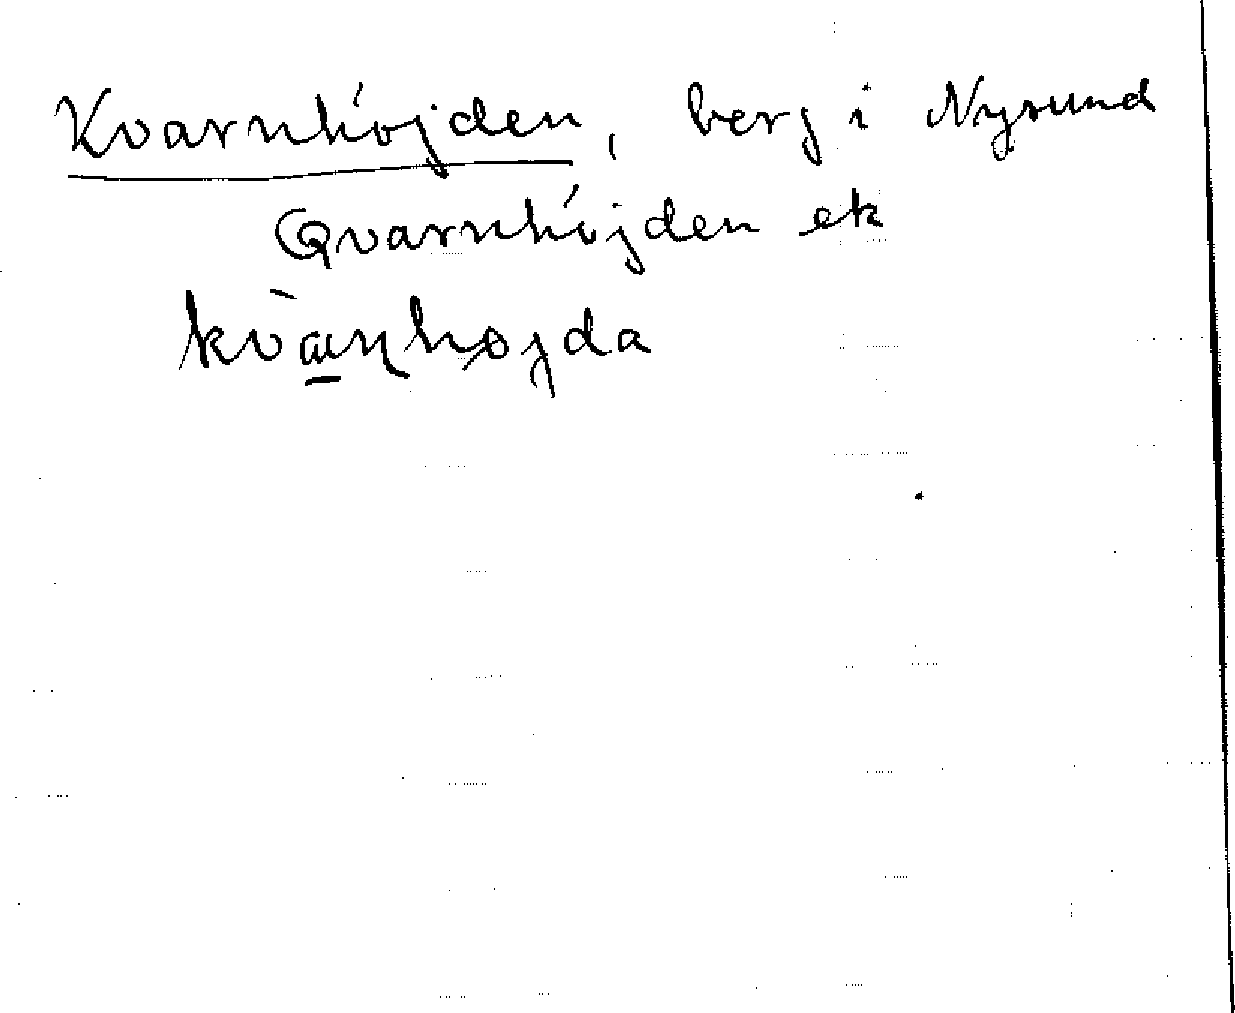 Kvarnhöjden, berg i Nysund
Qvarnhöjden ek
kvæ̀ɳhøjda